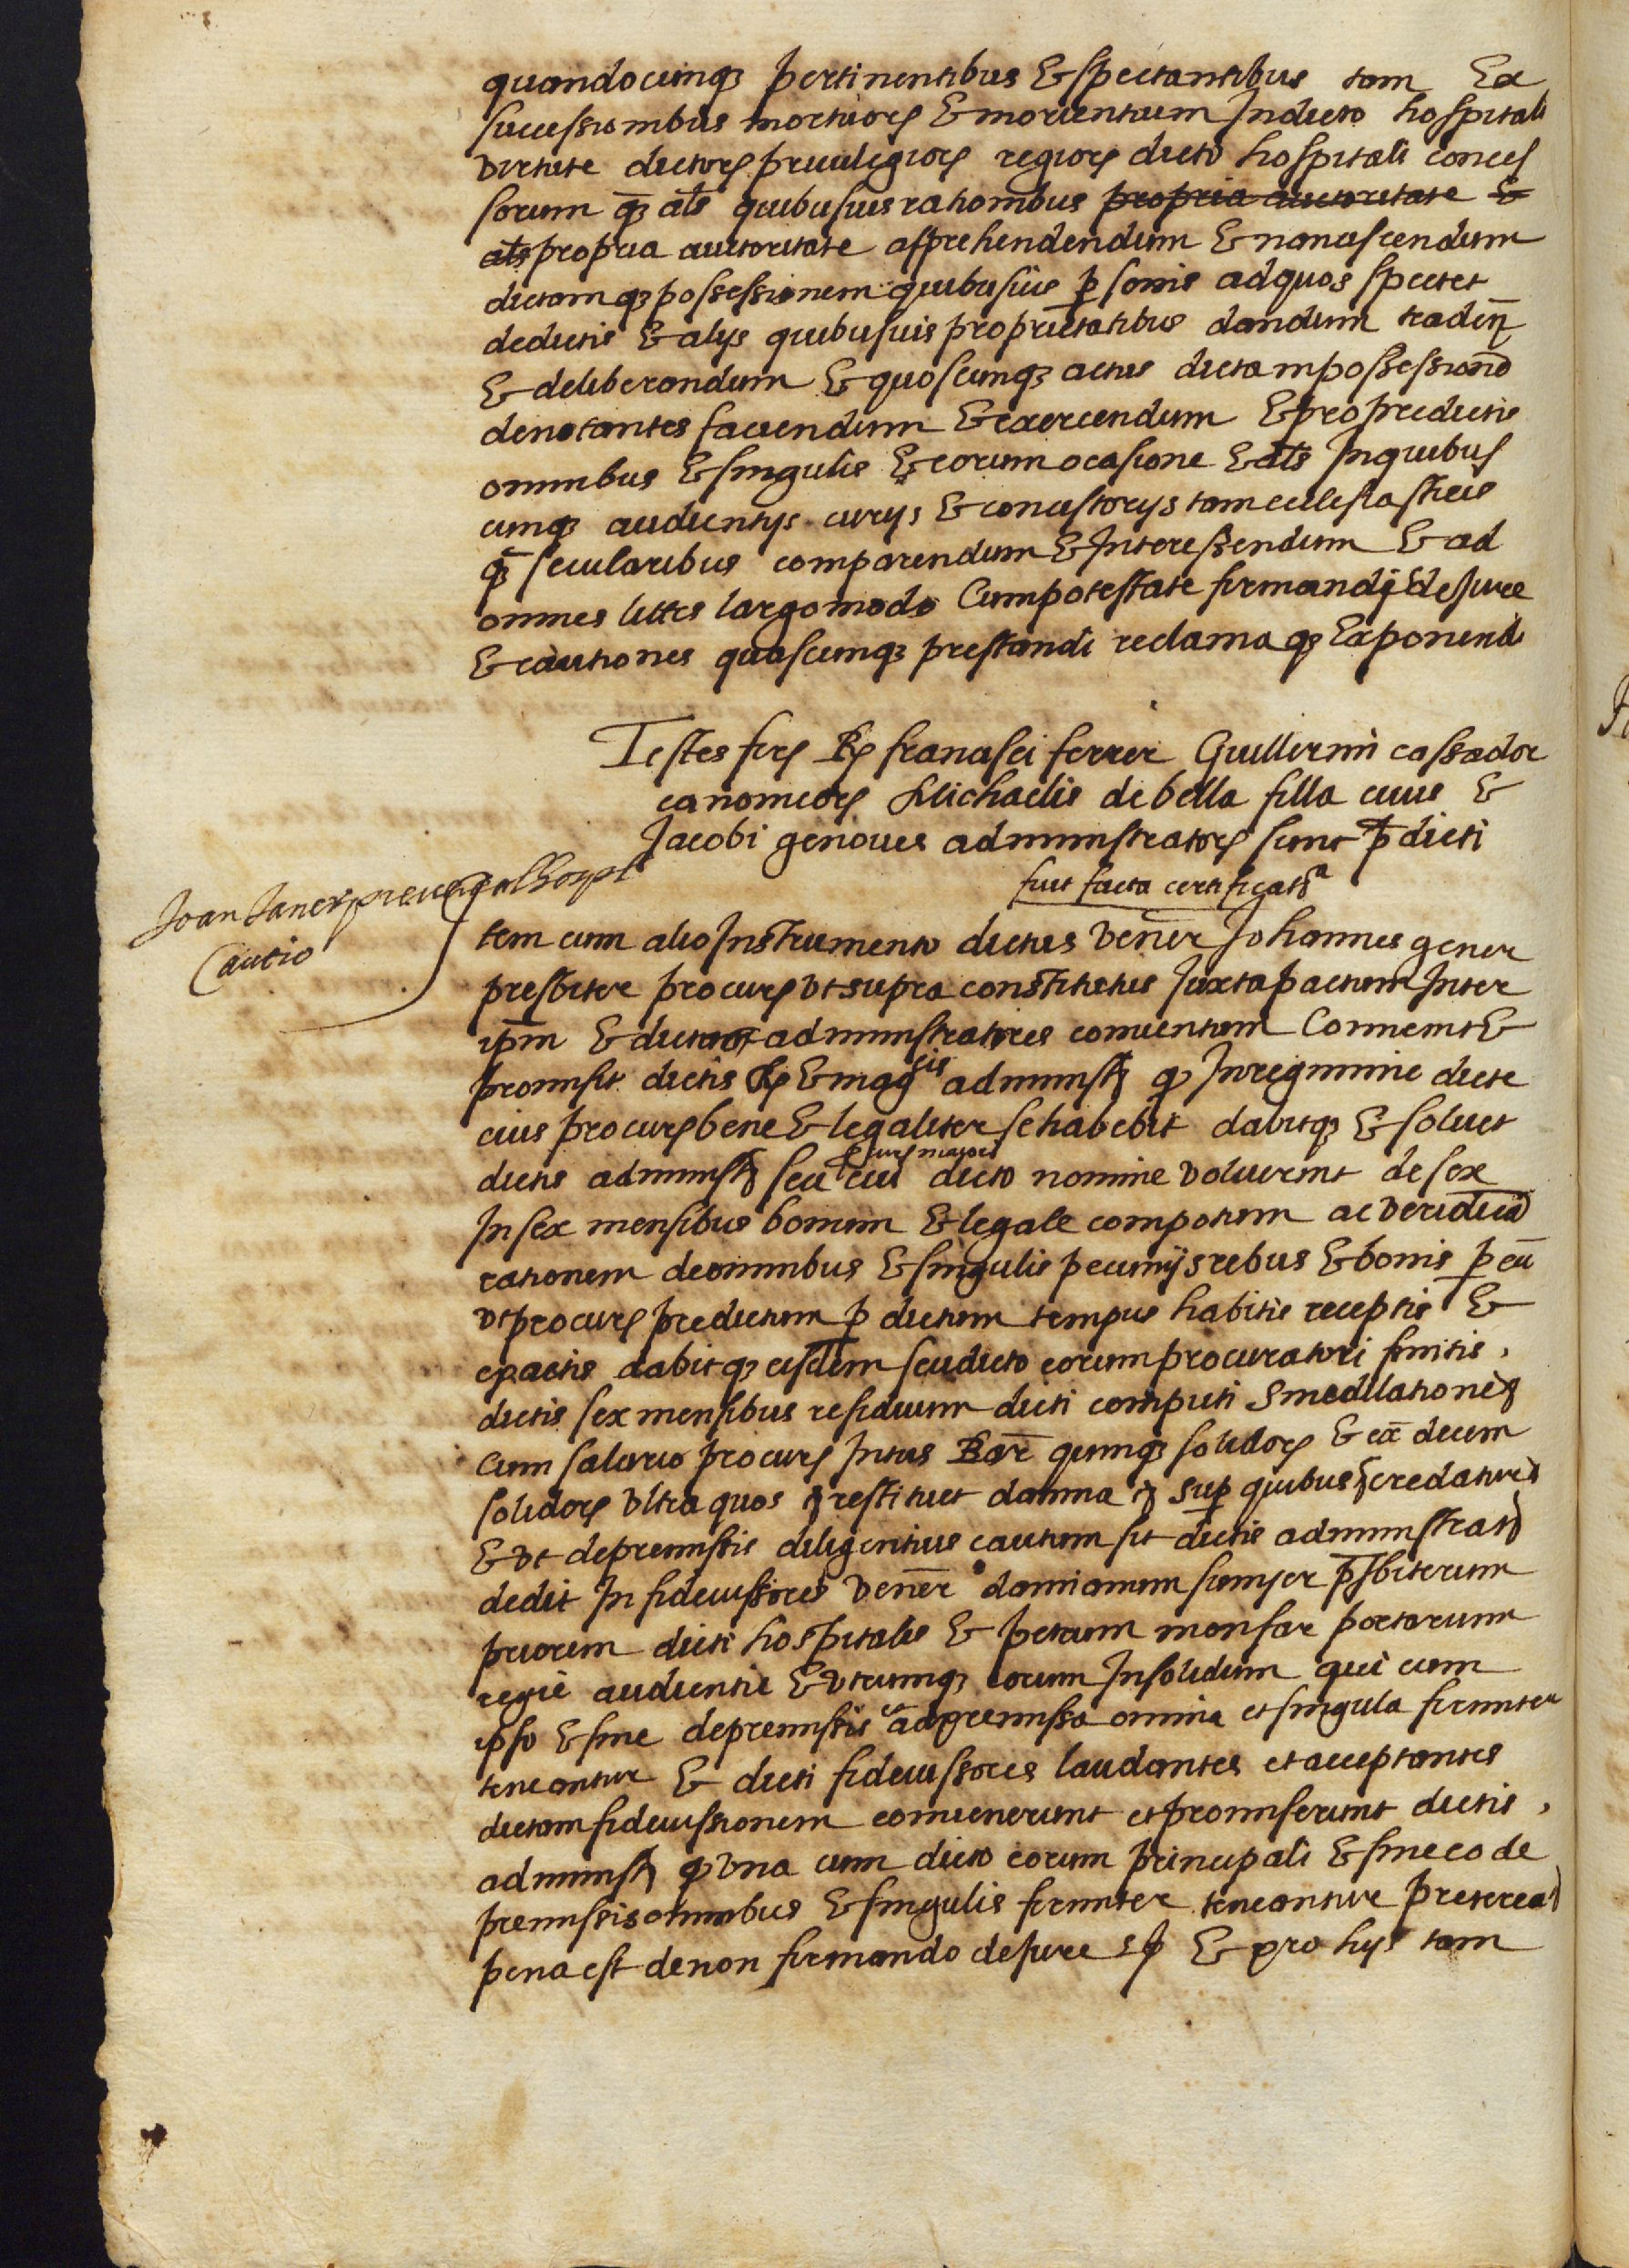 quandocunq3 pertinentibus & spectantibus tam Ex
sucessionibus mortuor & morientium In dicto hospitali
virtute dictor priuilegior regior dicto hospitali conces
sorum q3 als quibusuis rationibus propria auctoritate &
als propria auctoritate apprehendendum & nanciscendum
dictamq3 possessionem quibusuis psonis ad quos spectet
deductis & alijs quibusuis proprietatibus dandum traden
& deliberandum & quoscunq3 actus dictam possessione
denotantes faciendum & exercendum & pro predictis
omnibus & singulis & eorum ocasione & als In quibus
cunq3 audientijs curijs & concistorijs tam ecclesiasticis
q3 secularibus comparendum & Interessendum & ad
omnes littes largo modo Cum potestate firmandi de Jure
& cautiones quascunq3 prestandi reclamaq3 Exponendi
Testes firr R francisci ferrer Guillermi cassador
canonicor Michaelis de bella filla ciuis &
Jacobi genoues administrator sunt pdicti
fuit facta certificat
Joan Janer preuere q al hospl
Cautio
Item cum alio Instrumento dictus vener Johannes gener
presbiter procur vt supra constitutus Juxta pactum Inter
ipm & dictos administratores conuentum Conuenit &
promisit dictis R & magcis administ q In regimine dicte
eius procur bene & legaliter se habebit dabitq3 & soluet
dictis administ seu cui dicto nomine voluerint de sex
In sex mensibus bonum & legale compotum ac veridica
rationem de omnibus & singulis pecunijs rebus & bonis p eu
vt procur predictum p dictum tempus habitis receptis &
exactis dabitq3 eisdem seu dicto eorum procuratori finitis
dictis sex mensibus residuum dicti computi Sine dilatione
Cum salario procur Intus Bar quinq3 solidor & ex decem
solidor vltra quos restituet damna sup quibus credatur
& vt de premissis diligentius cautum sit dictis administrat
dedit In fideiussores vener damianum sunyer psbiterum
priorem dicti hospitalis & petrum monfar portarium
regie audientie & vtrumq3 eorum Insolidum qui cum
ipso & sine de premissis ad premissa omnia et singula firmiter
teneantur & dicti fideiussores laudantes et acceptantes
dictam fideiussionem conuenerunt et promiserunt dictis
administ q vna cum dicto eorum principali & sine eo de
premissis omnibus & singulis firmiter teneantur preterea
pena est de non firmando de Jure sp & pro hijs tam